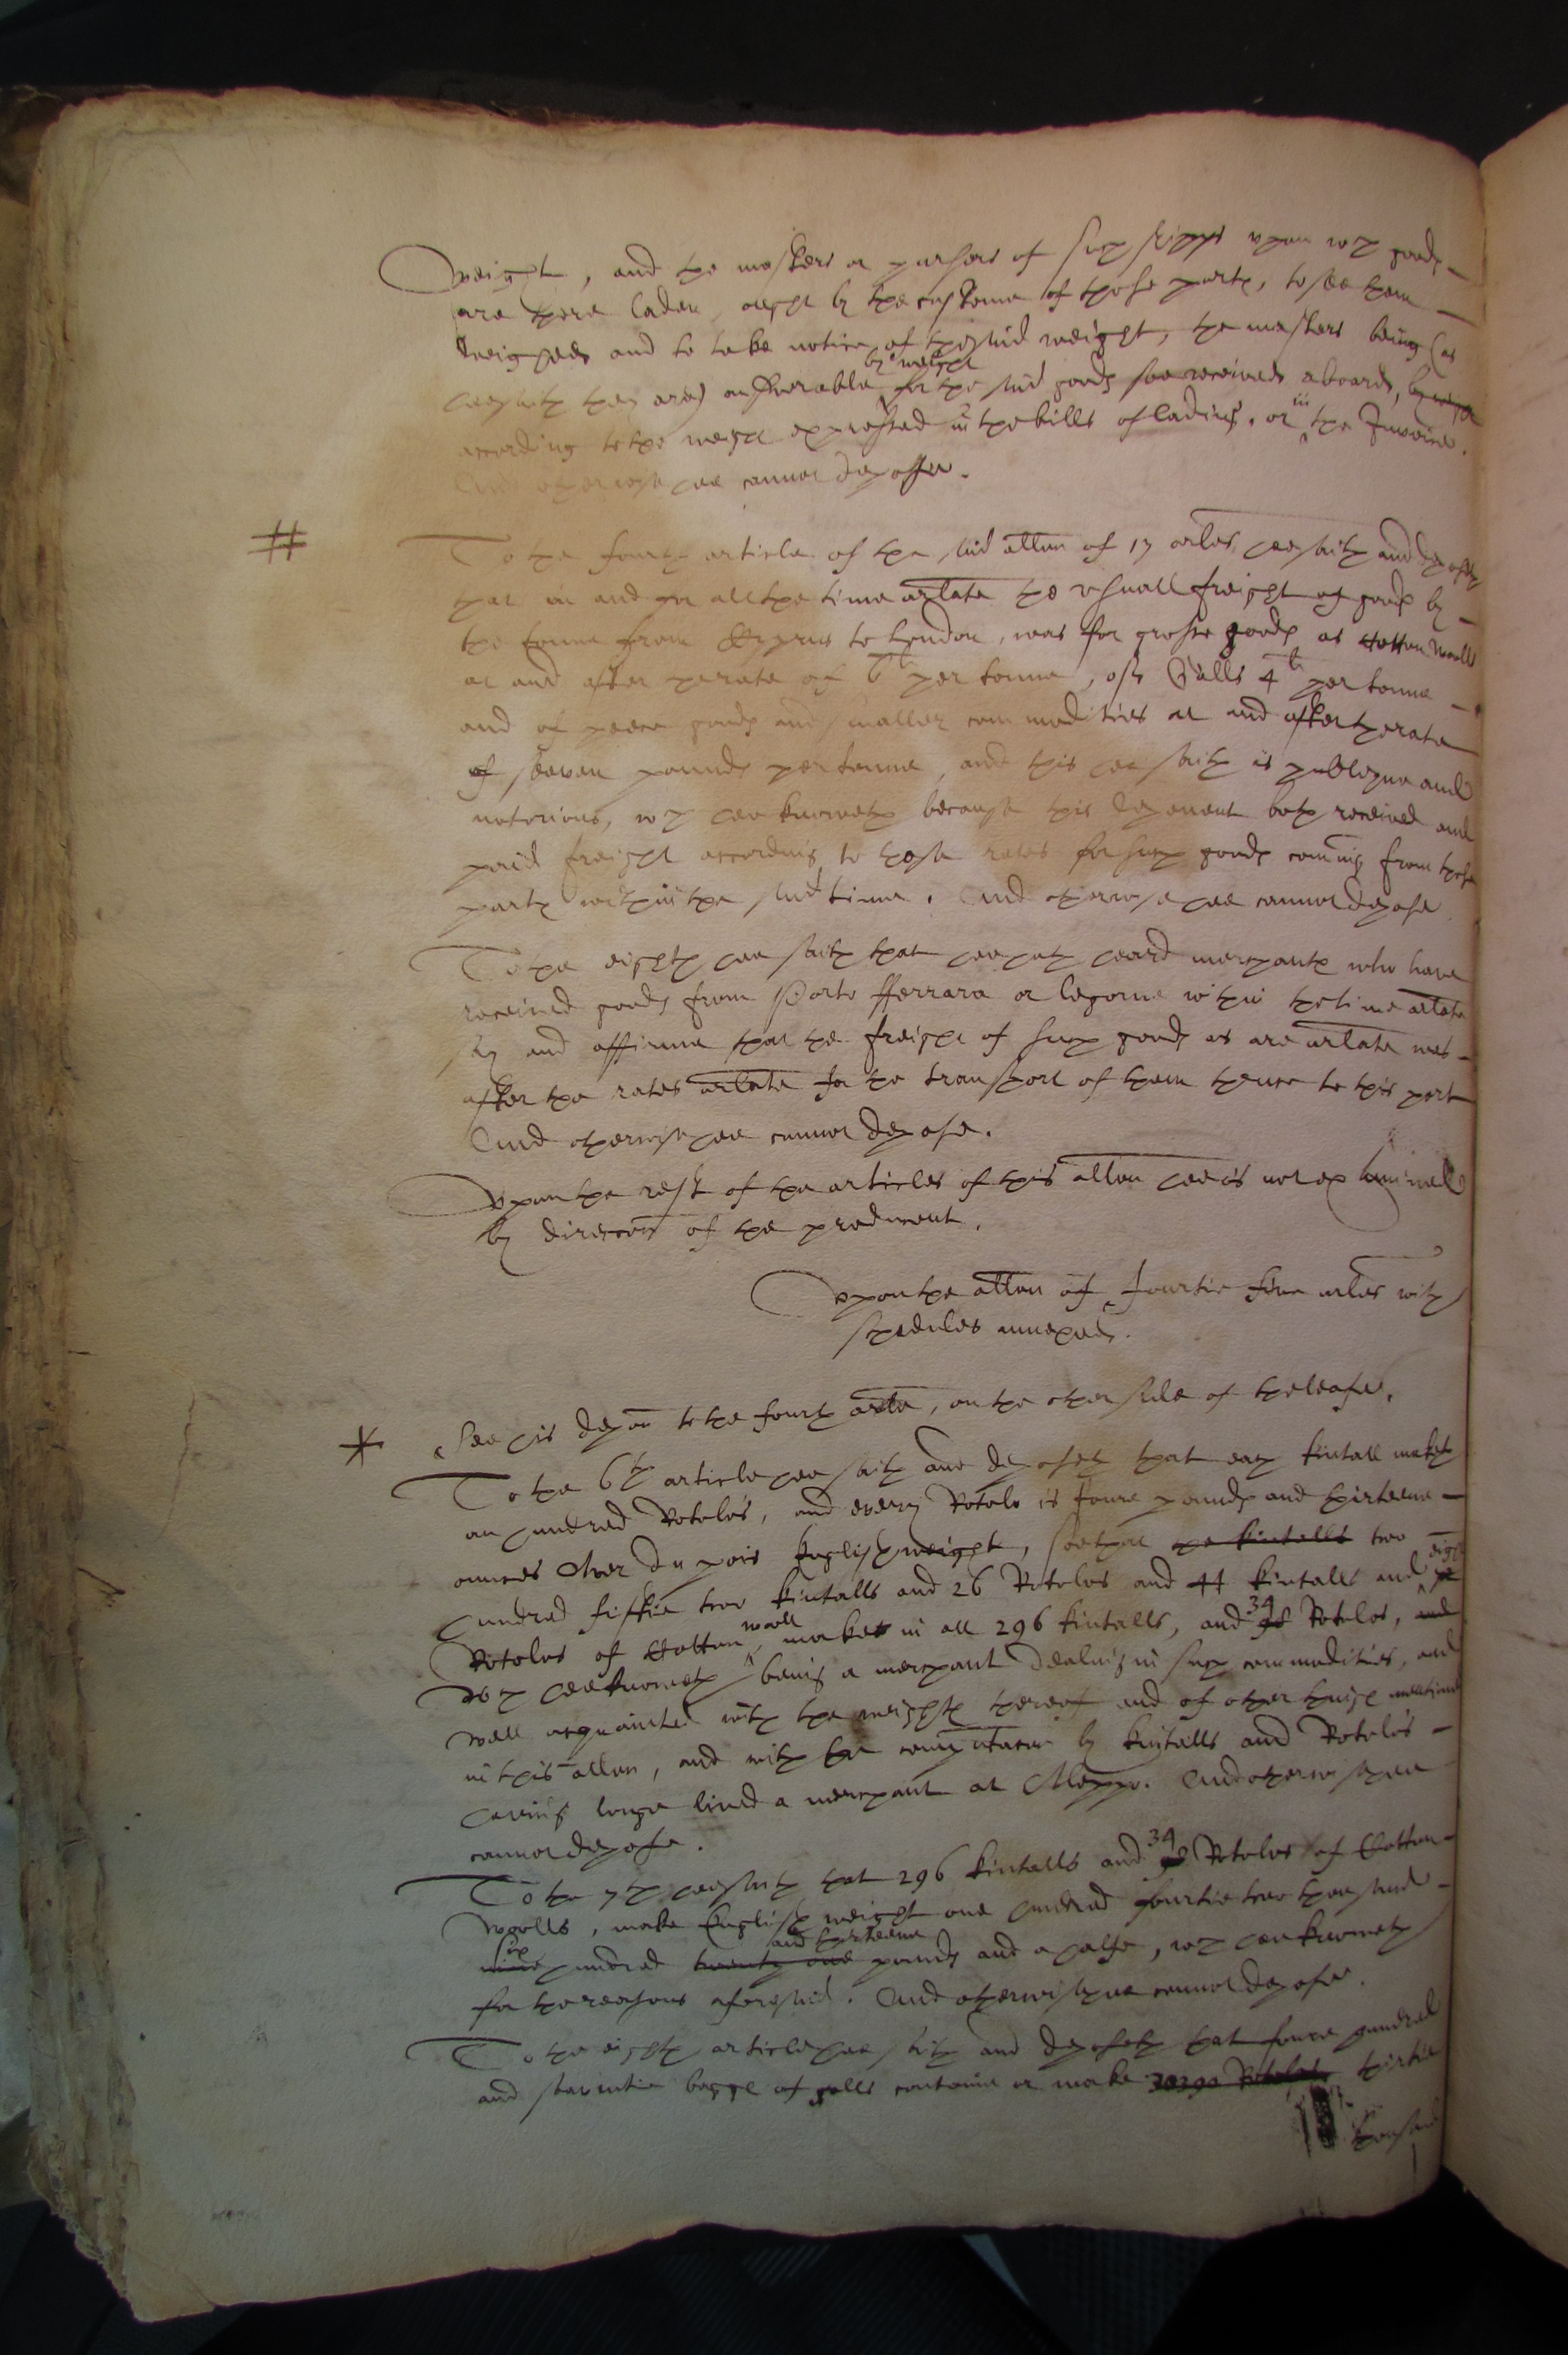 weight, and the masters or pursers of such shipps upon wch goods
are there laden, ought by the custome of those parts, to see them
weighed and to take notice of the said weight, the masters being (as
hee saith they are) answerable by weight for the said goods soe received aboard, by weight
according to the weight expressed in the bills of lading, or in the Invoice.
And otherwise hee cannot depose.
#
To the fourth article of the said allon of 17 arles, hee saith and deposeth
that in and for all the time arlate the usuall freight of goods by
the tonne from Cyprus to London, was for grosse goods as Cotton wools
at and after the rate of 6li per tonne, of Galls 4li per tonne
and of peece goods and smaller commodities at and after the rate
of seaven pounds per tonne, and this hee saith is publique and
notorious, wch hee knoweth because this deponent both received and
paid freight according to those rates for such goods coming from those
parts within the said time. And otherwise hee cannot depose
To the eighth hee saith that hee hath heard merchants who have
received goods from Porto Ferrara or legorne within the time arlate
say and affirme that the freight of such goods as are arlate was
after the rates arlate for the transport of them thence to this port
And otherwise hee cannot depose.
Upon the rest of the articles of this allon hee is not examined
by direccon of the producent.
Upon the allon of fourtie five arles with
schedules annexed.
* See his depon to the fourth arle, on the other side of the leafe.
To the 6th article hee saith and deposeth that each kintall maketh
an hundred Rotolos, and every Rotolo is foure pounds and thirteene
ounces Aver du pois English weight, soe that the kintalls two
hundred fiftie two kintalls and 26 Rotolos and 44 kintalls and eight
Rotolos of Cotton wooll, makes in all 296 kintalls, and 34 Rotolos, and
wch hee knoweth being a merchant dealing in such commodities, and
well acquainted with the weights thereof and of other things mentioned
in this allon, and with the computacon by kintalls and Rotolos
having longe lived a merchant at Aleppo. And otherwise hee
cannot depose.
To the 7th hee saith that 296 kintalls and 34 Rotolos of Cotton
woolls, make English weight one hundred fourtie two thousand
nine six hundred twenty one and thirteene pounds and a halfe, wch hee knoweth
for the reasons aforesaid. And otherwise hee cannot depose.
To the eighth article hee saith and deposeth that foure hundred
and seaventie baggs of galls containe or make Rotolos thirtie
thousand